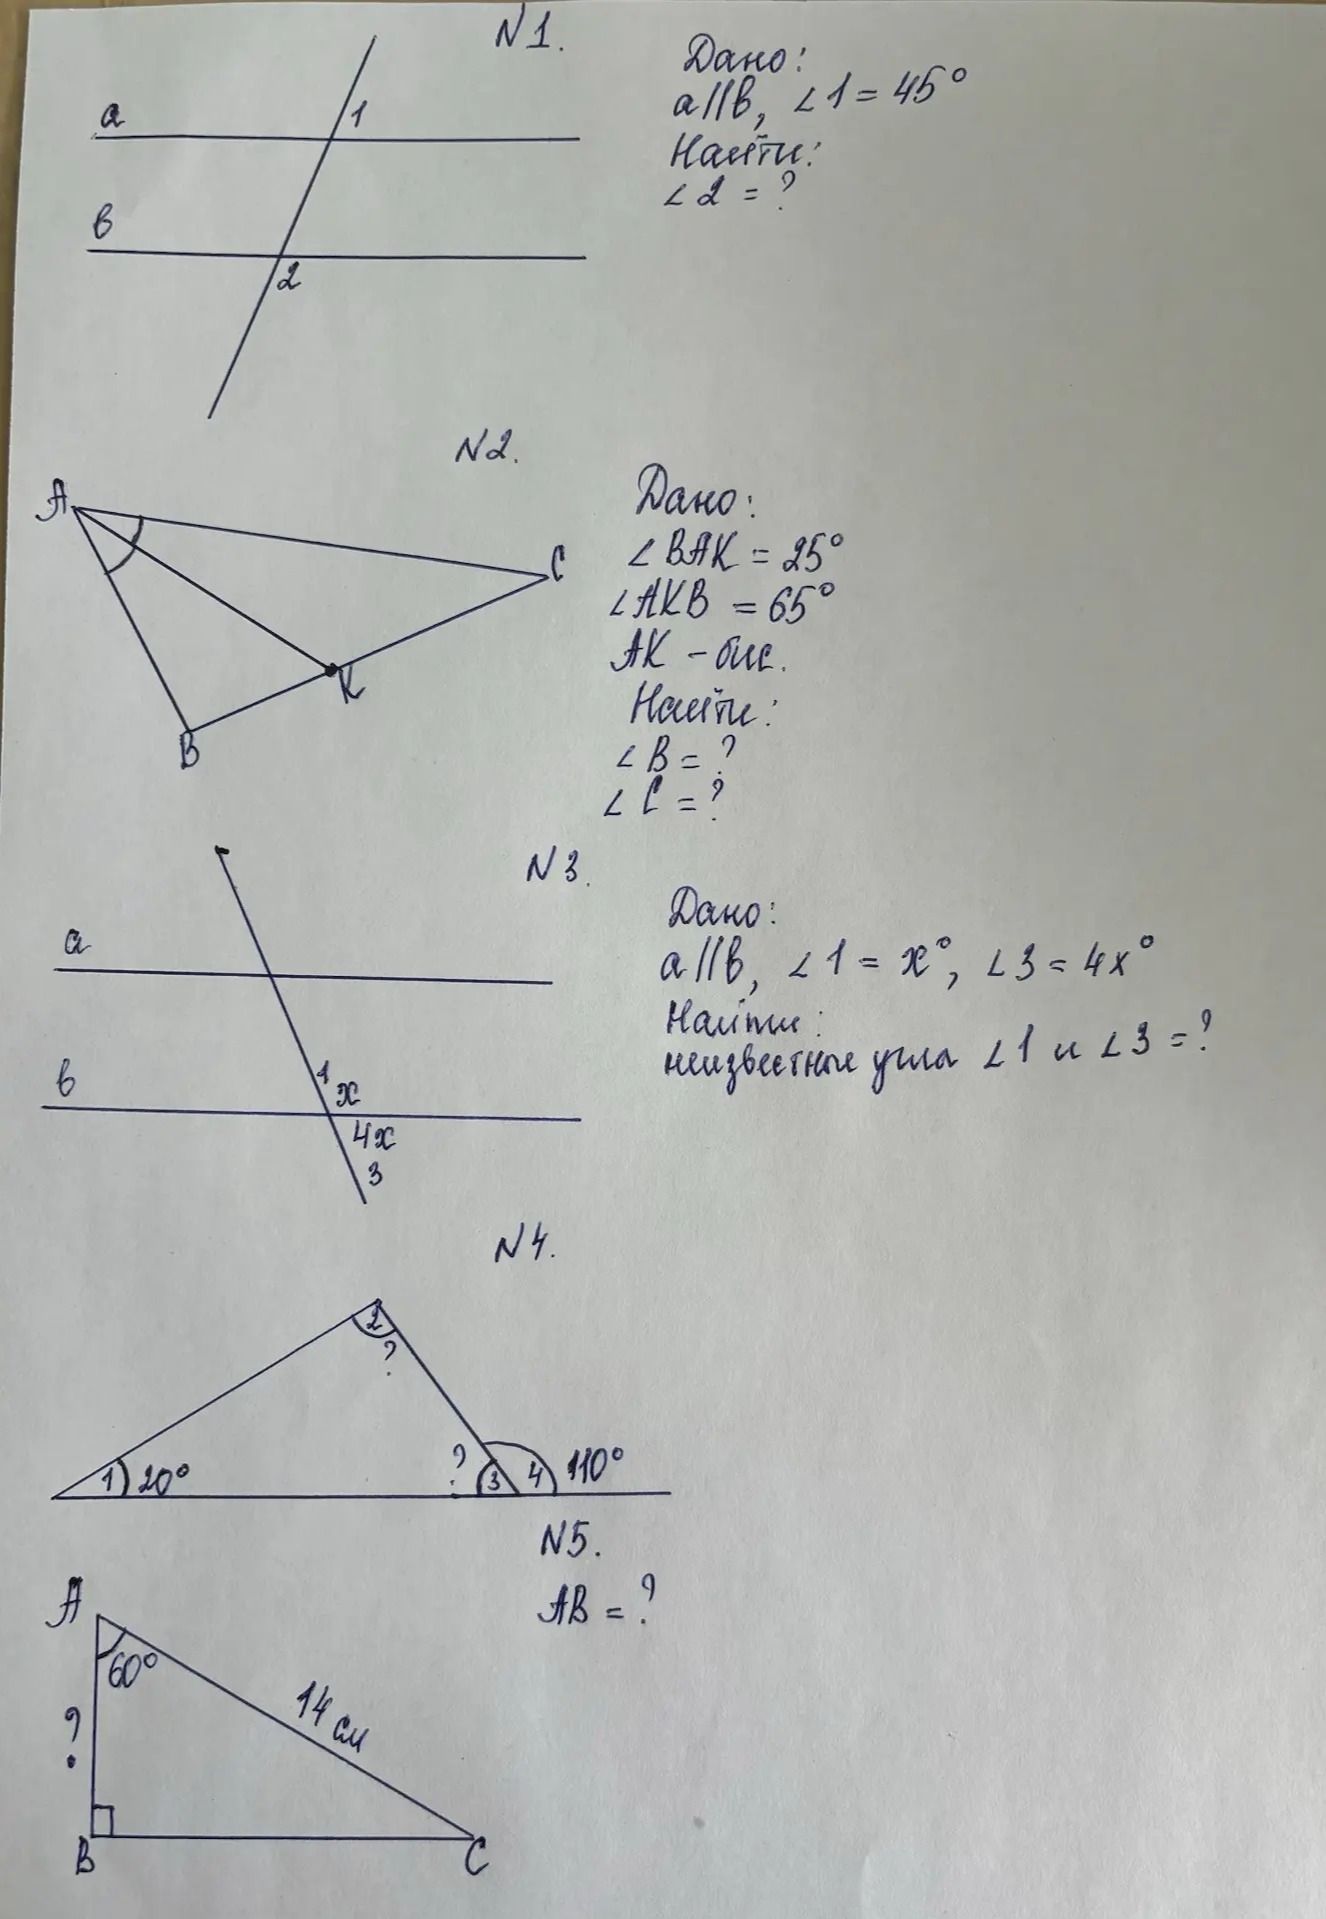 N1.
Дано:
a||b, ∠1 = 45°
Найти:
∠2 = ?
a
1
b
2
N2.
A
C
K
B
Дано:
∠BAK = 25°
∠AKB = 65°
AK - бис.
Найти:
∠B = ?
∠C = ?
N3.
a
b
1
x
4x
3
Дано:
a||b, ∠1 = x°, ∠3 = 4x°
Найти:
неизвестные угла ∠1 и ∠3 = ?
N4.
2
?
1 20°
? 3 4 110°
N5.
AB = ?
A
60°
14 см
?
B
C